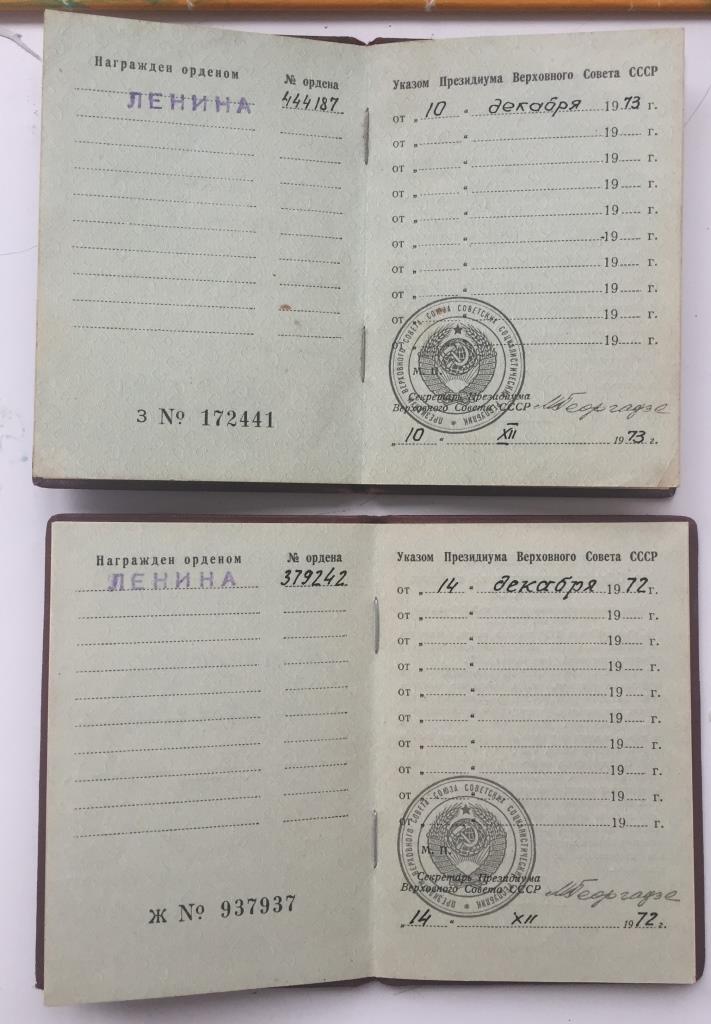 Награжден орденом
№ ордена
ЛЕНИНА 444187
З № 172441
Указом Президиума Верховного Совета СССР
от „ 10 “ декабря 1973 г.
от „ “ 19 г.
от „ “ 19 г.
от „ “ 19 г.
от „ “ 19 г.
от „ “ 19 г.
от „ “ 19 г.
от „ “ 19 г.
от „ “ 19 г.
от „ “ 19 г.
ПРЕЗИДИУМ ВЕРХОВНОГО СОВЕТА СОЮЗА СОВЕТСКИХ СОЦИАЛИСТИЧЕСКИХ РЕСПУБЛИК
М. П.
Секретарь Президиума
Верховного Совета СССР МГеоргадзе
„ 10 “ XII 1973 г.
Награжден орденом
№ ордена
ЛЕНИНА 379242
Ж № 937937
Указом Президиума Верховного Совета СССР
от „ 14 “ декабря 1972 г.
от „ “ 19 г.
от „ “ 19 г.
от „ “ 19 г.
от „ “ 19 г.
от „ “ 19 г.
от „ “ 19 г.
от „ “ 19 г.
от „ “ 19 г.
от „ “ 19 г.
ПРЕЗИДИУМ ВЕРХОВНОГО СОВЕТА СОЮЗА СОВЕТСКИХ СОЦИАЛИСТИЧЕСКИХ РЕСПУБЛИК
М. П.
Секретарь Президиума
Верховного Совета СССР МГеоргадзе
„ 14 “ XII 1972 г.